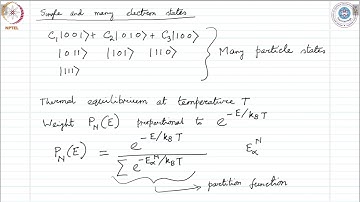 NPTEL
Single and many electron states
C₁|001⟩ + C₂|010⟩ + C₃|100⟩
|011⟩ |101⟩ |110⟩
|111⟩
Many particle states
Thermal equilibrium at temperature T
Weight P_N(E) proportional to e^{-E/k_BT}
P_N(E) = e^{-E/k_BT} / ∑ e^{-E_α^N/k_BT} E_α^N
→ partition function